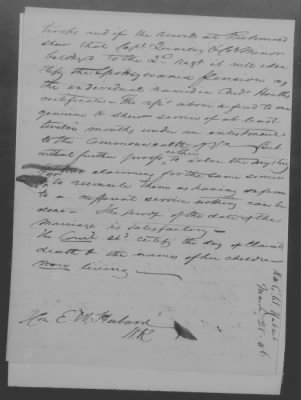 troops and if the records at Richmond
show that Capt. Quarles & Capt Minor
belonged to the 2d Regt it will iden
tify the Spotsylvania Pension as
the individual named in And. Hartley
certificate. The office above referred to are
genuine & show service of at least
twelve months under an enlistment
to the Commonwealth of Va but
without further proofs to
claiming for the same service
& to reconcile them as having reference
to a different service nothing can be
done. The proof of the date of the
marriage is satisfactory
the shd certify the day of
death & the names of her children
now living
Hon E. W. Hubard
HR
E W Hubard
March 28. 46